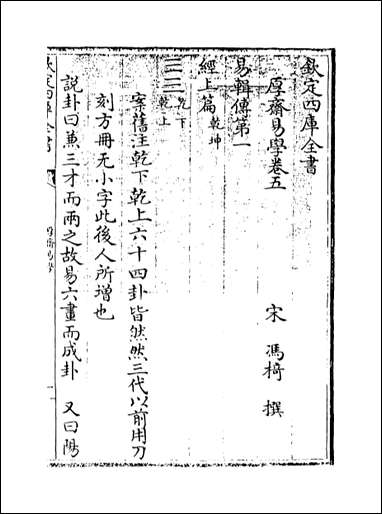 欽定四庫全書
厚齋易學卷五
宋 馮椅 撰
易輯傳第一
經上篇 乾坤
乾下
乾上
案舊注乾下乾上六十四卦皆然然三代以前用刀
刻方冊无小字此後人所增也
說卦曰兼三才而兩之故易六畫而成卦 又曰陽
欽定四庫全書